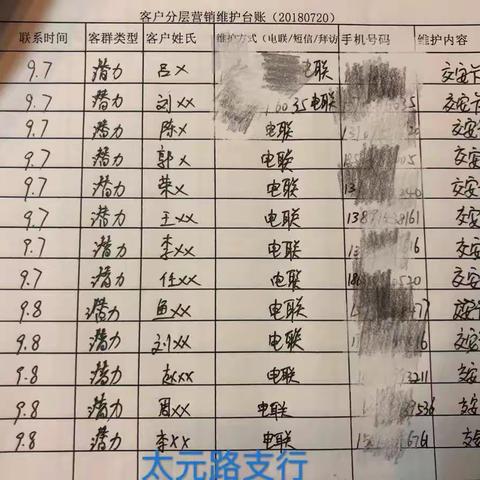 客户分层营销维护台账（20180720）
联系时间 客群类型 客户姓氏 维护方式（电联/短信/拜访 手机号码 维护内容
9.7 潜力 吕X 电联 交安卡
9.7 潜力 刘XX 电联 交安卡
9.7 潜力 陈X 电联 交安
9.7 潜力 郭X 电联 交安
9.7 潜力 荣X 电联 交安
9.7 潜力 王XX 电联 交安
9.7 潜力 李XX 电联 交安
9.7 潜力 任XX 电联 交安
9.8 潜力 鱼XX 电联 交安
9.8 潜力 刘XX 电联 交安
9.8 潜力 赵XX 电联 交安
9.8 潜力 周XX 电联 交安
9.8 潜力 李XX 电联
太元路支行